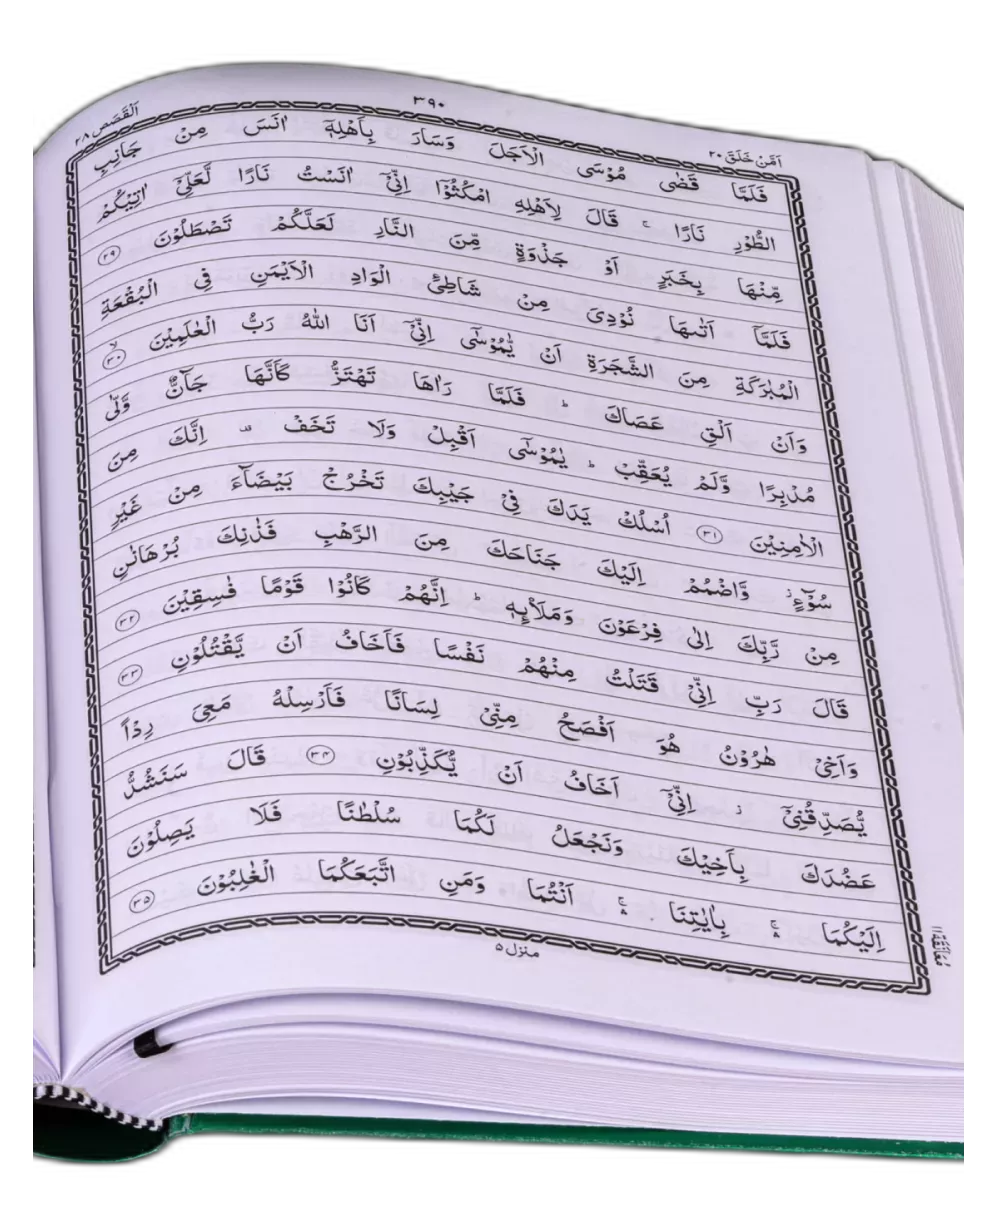 اَمَّنْ خَلَقَ ۲۰
۳۹۰
اَلْقَصَص ۲۸
فَلَمَّا قَضٰى مُوْسَى الْاَجَلَ وَسَارَ بِاَهْلِهٖۤ اٰنَسَ مِنْ جَانِبِ
الطُّوْرِ نَارًا ۚ قَالَ لِاَهْلِهِ امْكُثُوْۤا اِنِّىْۤ اٰنَسْتُ نَارًا لَّعَلِّىْۤ اٰتِيْكُمْ
مِّنْهَا بِخَبَرٍ اَوْ جَذْوَةٍ مِّنَ النَّارِ لَعَلَّكُمْ تَصْطَلُوْنَ ﴿۲۹﴾
فَلَمَّاۤ اَتٰىهَا نُوْدِىَ مِنْ شَاطِئِ الْوَادِ الْاَيْمَنِ فِى الْبُقْعَةِ
الْمُبٰرَكَةِ مِنَ الشَّجَرَةِ اَنْ يّٰمُوْسٰۤى اِنِّىْۤ اَنَا اللّٰهُ رَبُّ الْعٰلَمِيْنَ ﴿ۙ۳۰﴾
وَاَنْ اَلْقِ عَصَاكَ ؕ فَلَمَّا رَاٰهَا تَهْتَزُّ كَاَنَّهَا جَآنٌّ وَّلّٰى
مُدْبِرًا وَّلَمْ يُعَقِّبْ ؕ يٰمُوْسٰۤى اَقْبِلْ وَلَا تَخَفْ ۫ اِنَّكَ مِنَ
الْاٰمِنِيْنَ ﴿۳۱﴾ اُسْلُكْ يَدَكَ فِىْ جَيْبِكَ تَخْرُجْ بَيْضَآءَ مِنْ غَيْرِ
سُوْٓءٍ ؗ وَّاضْمُمْ اِلَيْكَ جَنَاحَكَ مِنَ الرَّهْبِ فَذٰنِكَ بُرْهَانٰنِ
مِنْ رَّبِّكَ اِلٰى فِرْعَوْنَ وَمَلَا۟ئِهٖ ؕ اِنَّهُمْ كَانُوْا قَوْمًا فٰسِقِيْنَ ﴿۳۲﴾
قَالَ رَبِّ اِنِّىْ قَتَلْتُ مِنْهُمْ نَفْسًا فَاَخَافُ اَنْ يَّقْتُلُوْنِ ﴿۳۳﴾
وَاَخِىْ هٰرُوْنُ هُوَ اَفْصَحُ مِنِّىْ لِسَانًا فَاَرْسِلْهُ مَعِىَ رِدْاً
يُّصَدِّقُنِىْۤ ؗ اِنِّىْۤ اَخَافُ اَنْ يُّكَذِّبُوْنِ ﴿۳۴﴾ قَالَ سَنَشُدُّ
عَضُدَكَ بِاَخِيْكَ وَنَجْعَلُ لَكُمَا سُلْطٰنًا فَلَا يَصِلُوْنَ
اِلَيْكُمَا ۛۚ بِاٰيٰتِنَا ۛۚ اَنْتُمَا وَمَنِ اتَّبَعَكُمَا الْغٰلِبُوْنَ ﴿۳۵﴾
مُعَانَقَة ۱۱
منزل ۵